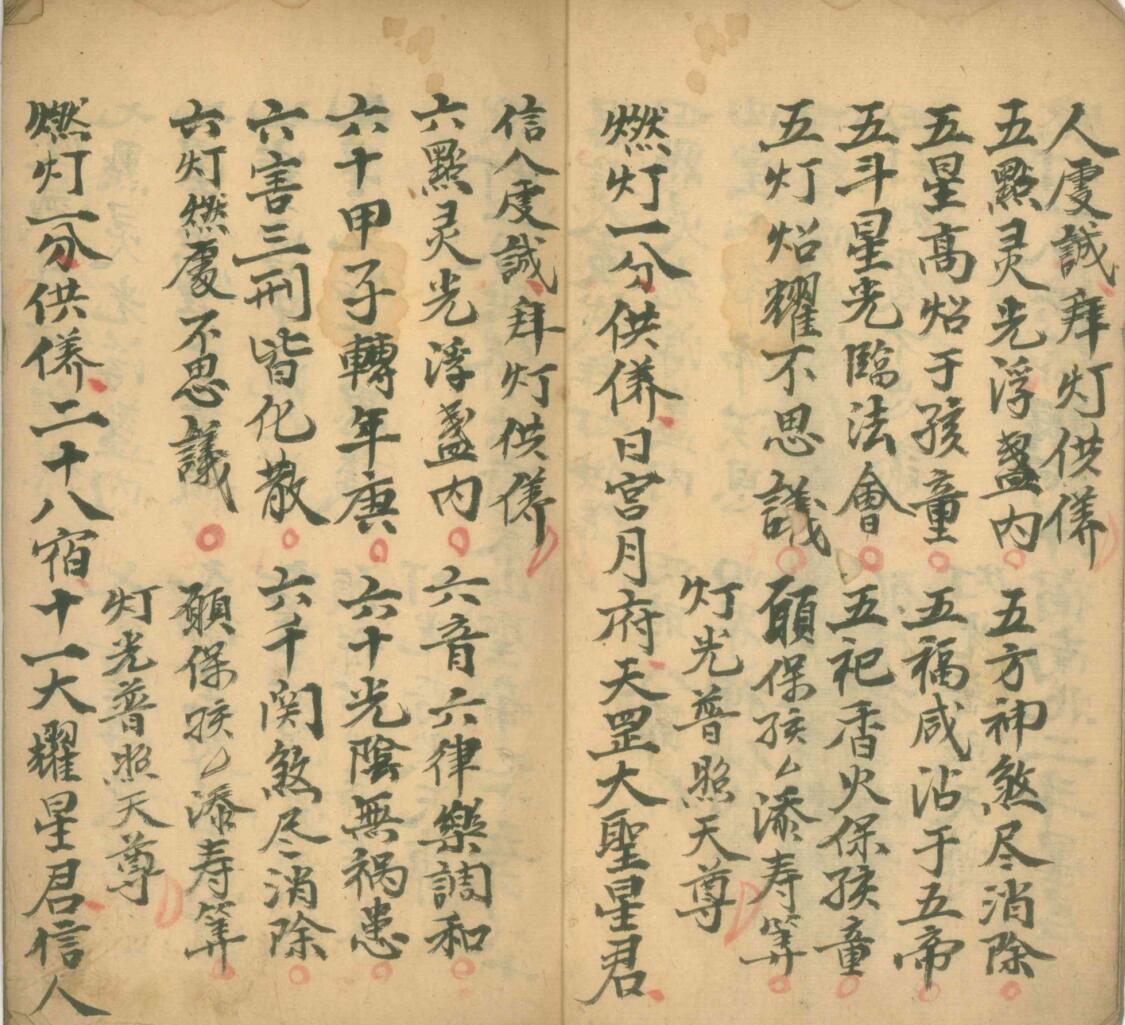 人虔誠拜灯供儀
五點灵光浮盞内 五方神煞尽消除
五星高炤于孩童 五福咸沾于五帝
五斗星光臨法會 五祀香火保孩童
五灯炤耀不思議 願保孩厶添寿筭
灯光普照天尊
燃灯一分供儀日宮月府天罡大聖星君
信人虔誠拜灯供儀
六點灵光浮盞内 六音六律樂調和
六十甲子轉年庚 六十光陰無禍患
六害三刑皆化散 六千関煞尽消除
六灯燃處不思議 願保孩厶添寿筭
灯光普照天尊
燃灯一分供儀二十八宿十一大耀星君信人